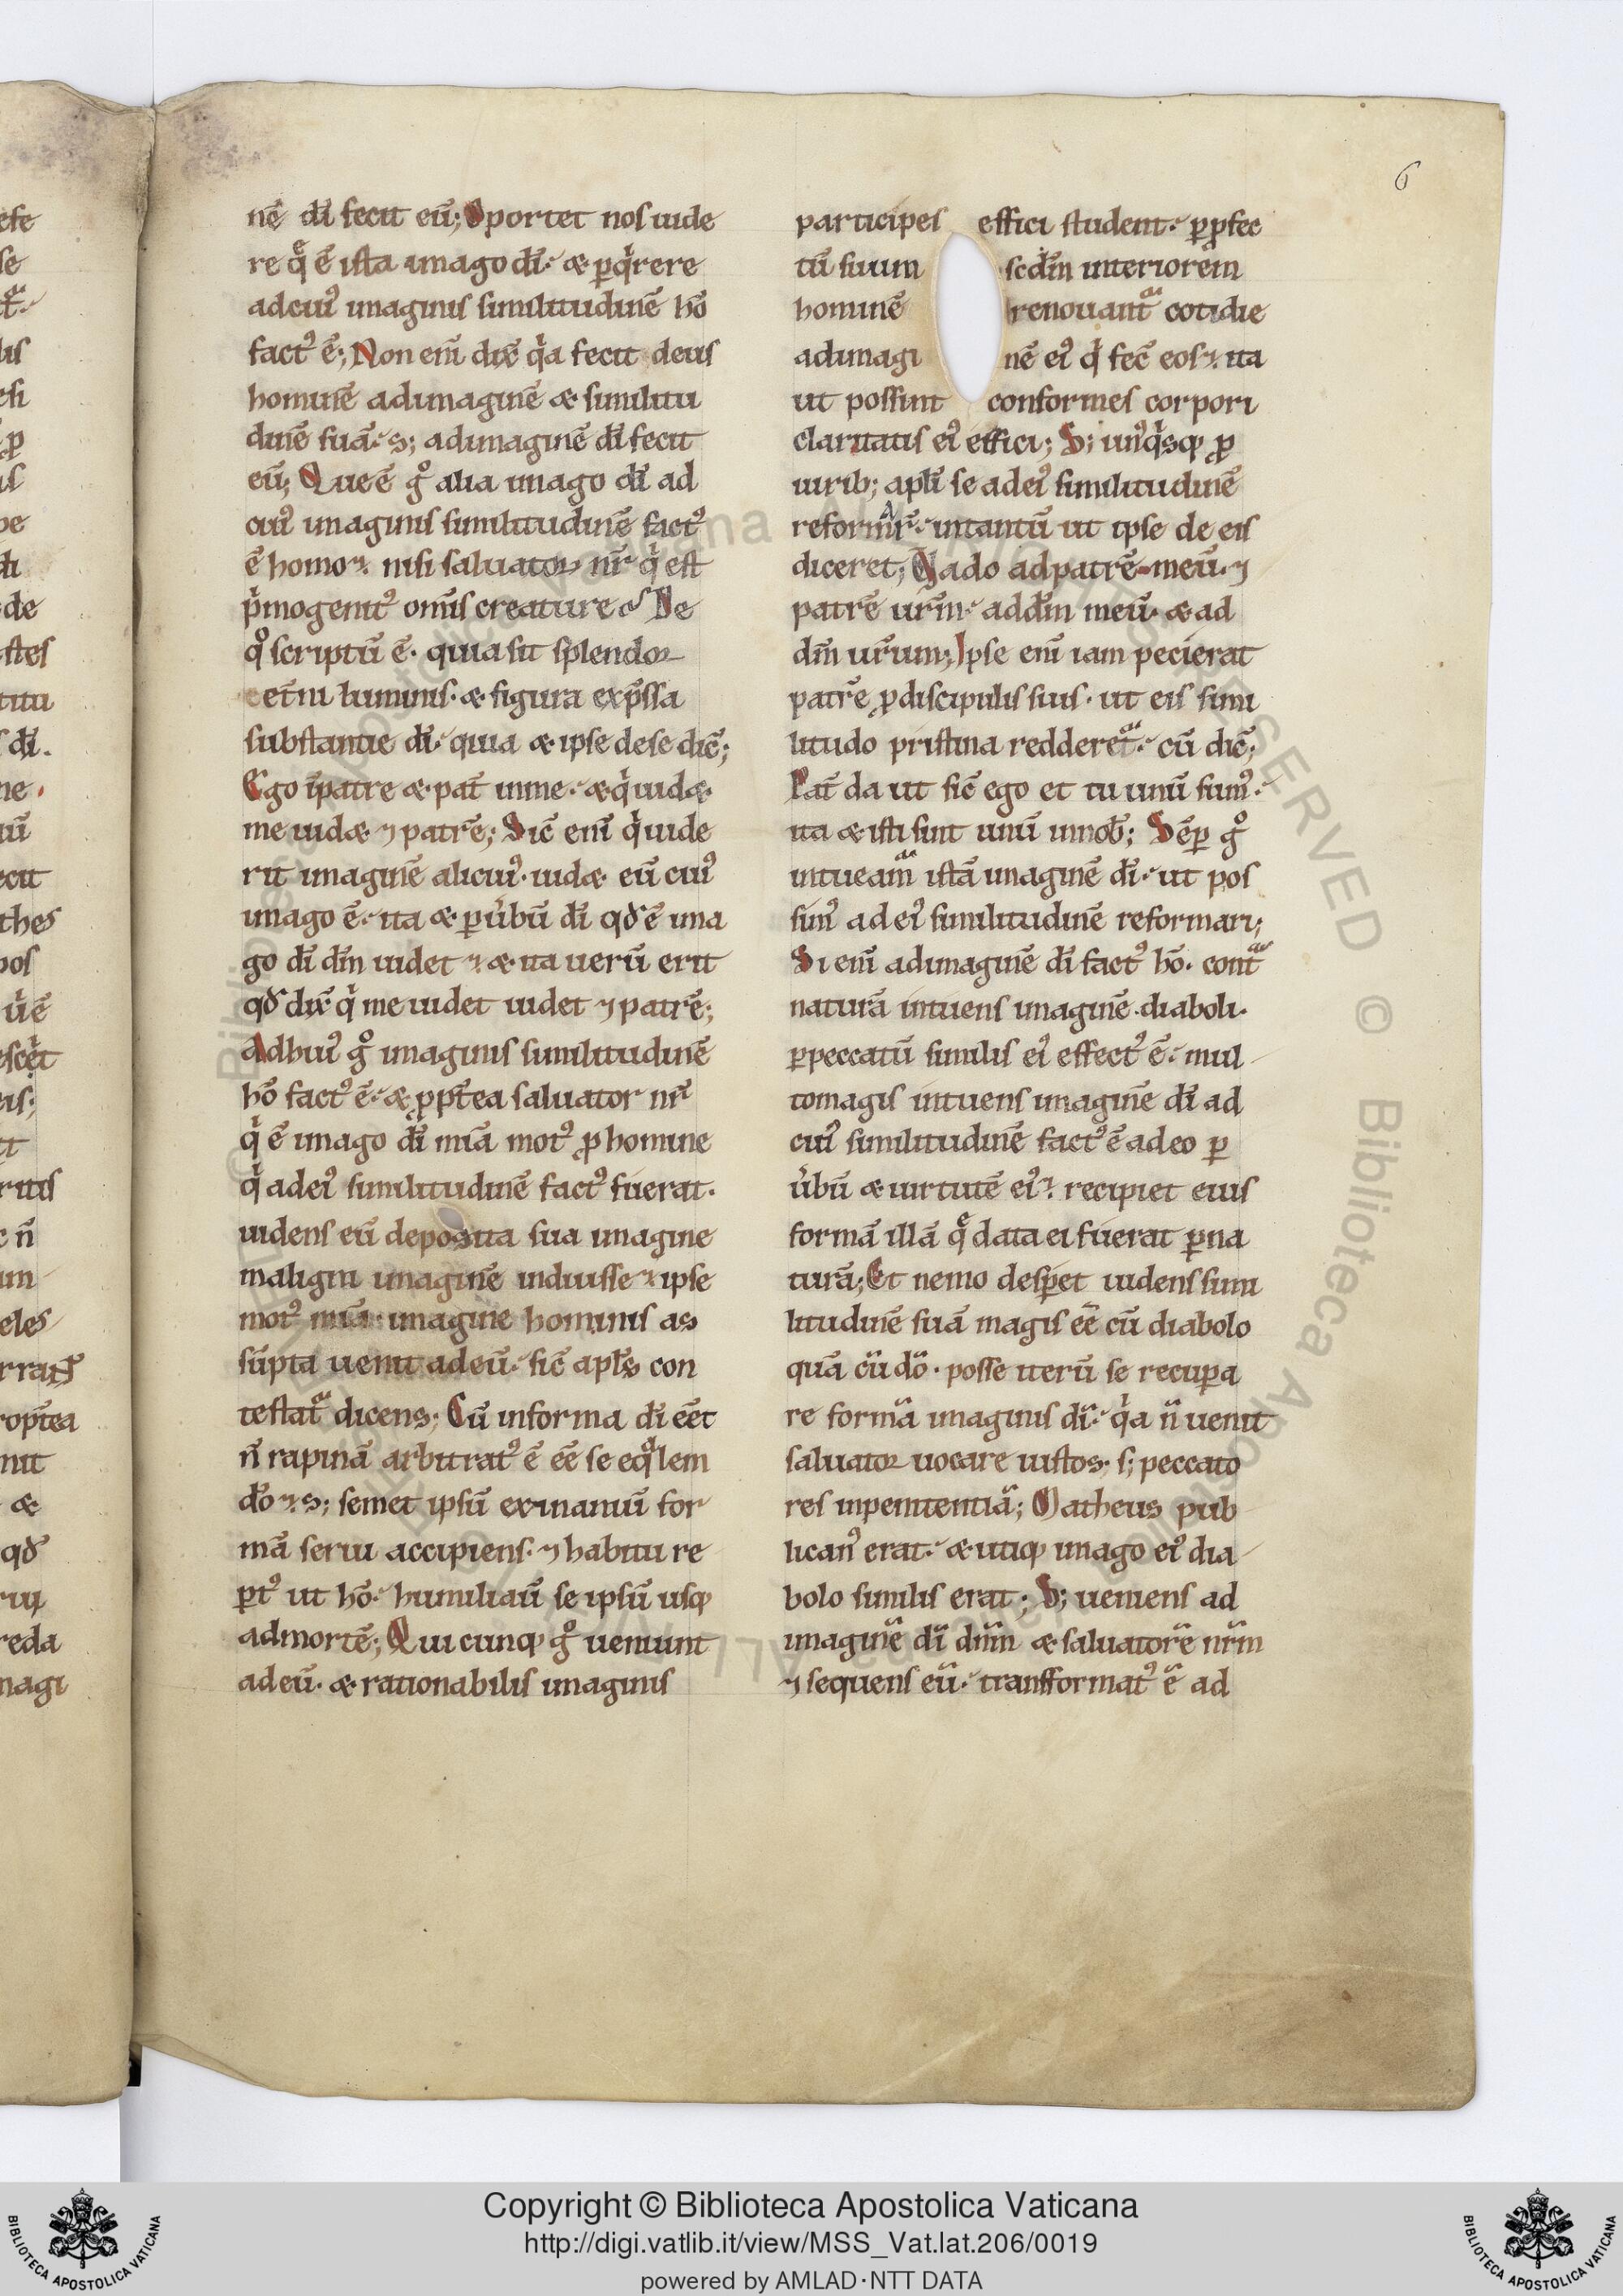 6
nē dī fecit eū; Oportet nos uide
re q̄ ē ista imago dī. & perq̇rere
ad cui᷒ imaginis similitudinē hō
fact᷒ ē; Non enī dix̄ q̇a fecit deus
hominē ad imaginē & similitu
dinē suā. s; ad imaginē dī fecit
eū; Que ē gͦ alia imago dī ad
cui᷒ imaginis similitudinē fact᷒
ē homo. nisi saluator nr̄ q̇ est
ṗmogenit᷒ om̄is creature. De
qͦ scriptū ē. quia sit splendor
et̄ni luminis. & figura exp̄ssa
substantie dī. quia & ipse de se dic̄;
Ego ī patre & pat̄ in me. & q̇ uid&
me uid& ⁊ patrē; Sic̄ enī q̇ uide
rit imaginē alicui᷒. uid& eū cui᷒
imago ē. ita & ꝑ u̇bū dī qd̄ ē ima
go dī dm̄ uidet. & ita uerū erit
qd̄ dix̄ q̇ me uidet uidet ⁊ patrē;
Ad hui᷒ gͦ imaginis similitudinē
hō fact᷒ ē. & ꝓpt̄ea saluator nr̄
q̇ ē imago dī mīa mot᷒ ꝓ homine
q̇ ad ei᷒ similitudinē fact᷒ fuerat.
uidens eū deposita sua imagine
maligni imaginē induisse. ipse
mot᷒ mīa. imagine hominis as
sūpta uenit ad eū. sic̄ apl̄s con
testatᷓ dicens; Cū in forma dī eēt
n̄ rapinā arbitrat᷒ ē eē se eqᷓlem
dō. s; semet ipsū exinaniū for
mā serui accipiens. ⁊ habitu re
ꝑt᷒ ut hō. humiliaū se ipsū usqꝫ
ad mortē; Quicunqꝫ gͦ ueniunt
ad eū. & rationabilis imaginis
participes effici student. ꝑ ꝓfec
tū suum scdm̄ interiorem
hominē renouantᷓ cotidie
ad imagi nē ei᷒ q̇ fec̄ eos. ita
ut possint conformes corpori
claritatis ei᷒ effici; S; un᷒q̇sqꝫ ꝓ
uirib; apl̄i se ad ei᷒ similitudinē
reformr̄. in tantū ut ipse de eis
diceret; Uado ad patrē meū. ⁊
patrē ur̄m. ad dm̄ meū. & ad
dm̄ ur̄um; Ipse enī iam pecierat
patrē ꝓ discipulis suis. ut eis simi
litudo pristina redderetᷓ. cū dic̄;
Pat̄ da ut sic̄ ego et tu unū sum᷒.
ita & isti sint unū in nob̄; Sēꝑ gͦ
intueamᷓ istā imaginē dī. ut pos
sim᷒ ad ei᷒ similitudinē reformari;
Si enī ad imaginē dī fact᷒ hō. contᷓ
naturā intuens imaginē diaboli.
ꝑ peccatū similis ei᷒ effect᷒ ē. mul
to magis intuens imaginē dī ad
cui᷒ similitudinē fact᷒ ē a deo ꝑ
u̇bū & uirtutē ei᷒. recipiet eius
formā illā q̄ data ei fuerat ꝑ na
turā; Et nemo desꝑet uidens simi
litudinē suā magis eē cū diabolo
quā cū dō. posse iterū se recuꝑa
re formā imaginis dī. q̇a n̄ uenit
saluator uocare iustos. s; peccato
res in penitentiā; Matheus pub
lican᷒ erat. & utiqꝫ imago ei᷒ dia
bolo similis erat; S; ueniens ad
imaginē dī dnm̄ & saluatorē nr̄m
⁊ sequens eū. transformat᷒ ē ad
Copyright © Biblioteca Apostolica Vaticana
http://digi.vatlib.it/view/MSS_Vat.lat.206/0019
powered by AMLAD·NTT DATA
BIBLIOTECA APOSTOLICA VATICANA
BIBLIOTECA APOSTOLICA VATICANA